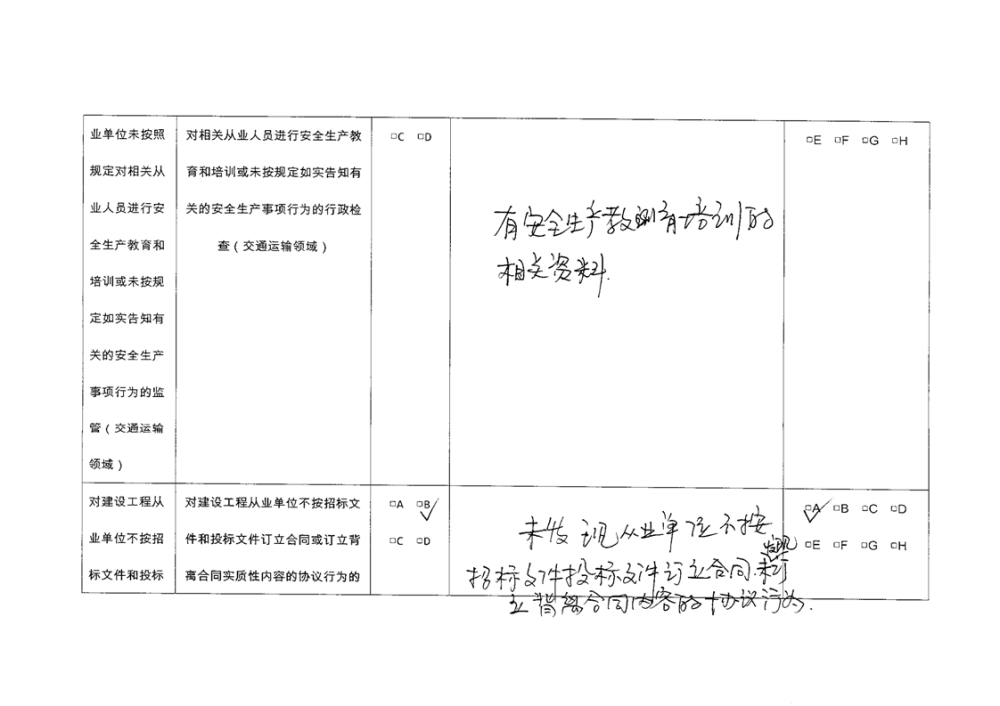 业单位未按照
规定对相关从
业人员进行安
全生产教育和
培训或未按规
定如实告知有
关的安全生产
事项行为的监
管（交通运输
领域）
对相关从业人员进行安全生产教
育和培训或未按规定如实告知有
关的安全生产事项行为的行政检
查（交通运输领域）
□C □D
有安全生产教育培训的
相关资料.
□E □F □G □H
对建设工程从
业单位不按招
标文件和投标
对建设工程从业单位不按招标文
件和投标文件订立合同或订立背
离合同实质性内容的协议行为的
□A □B✓
□C □D
未发现从业单位不按
招标文件投标文件订立合同.未发现订
立背离合同内容的协议行为.
□A✓ □B □C □D
□E □F □G □H